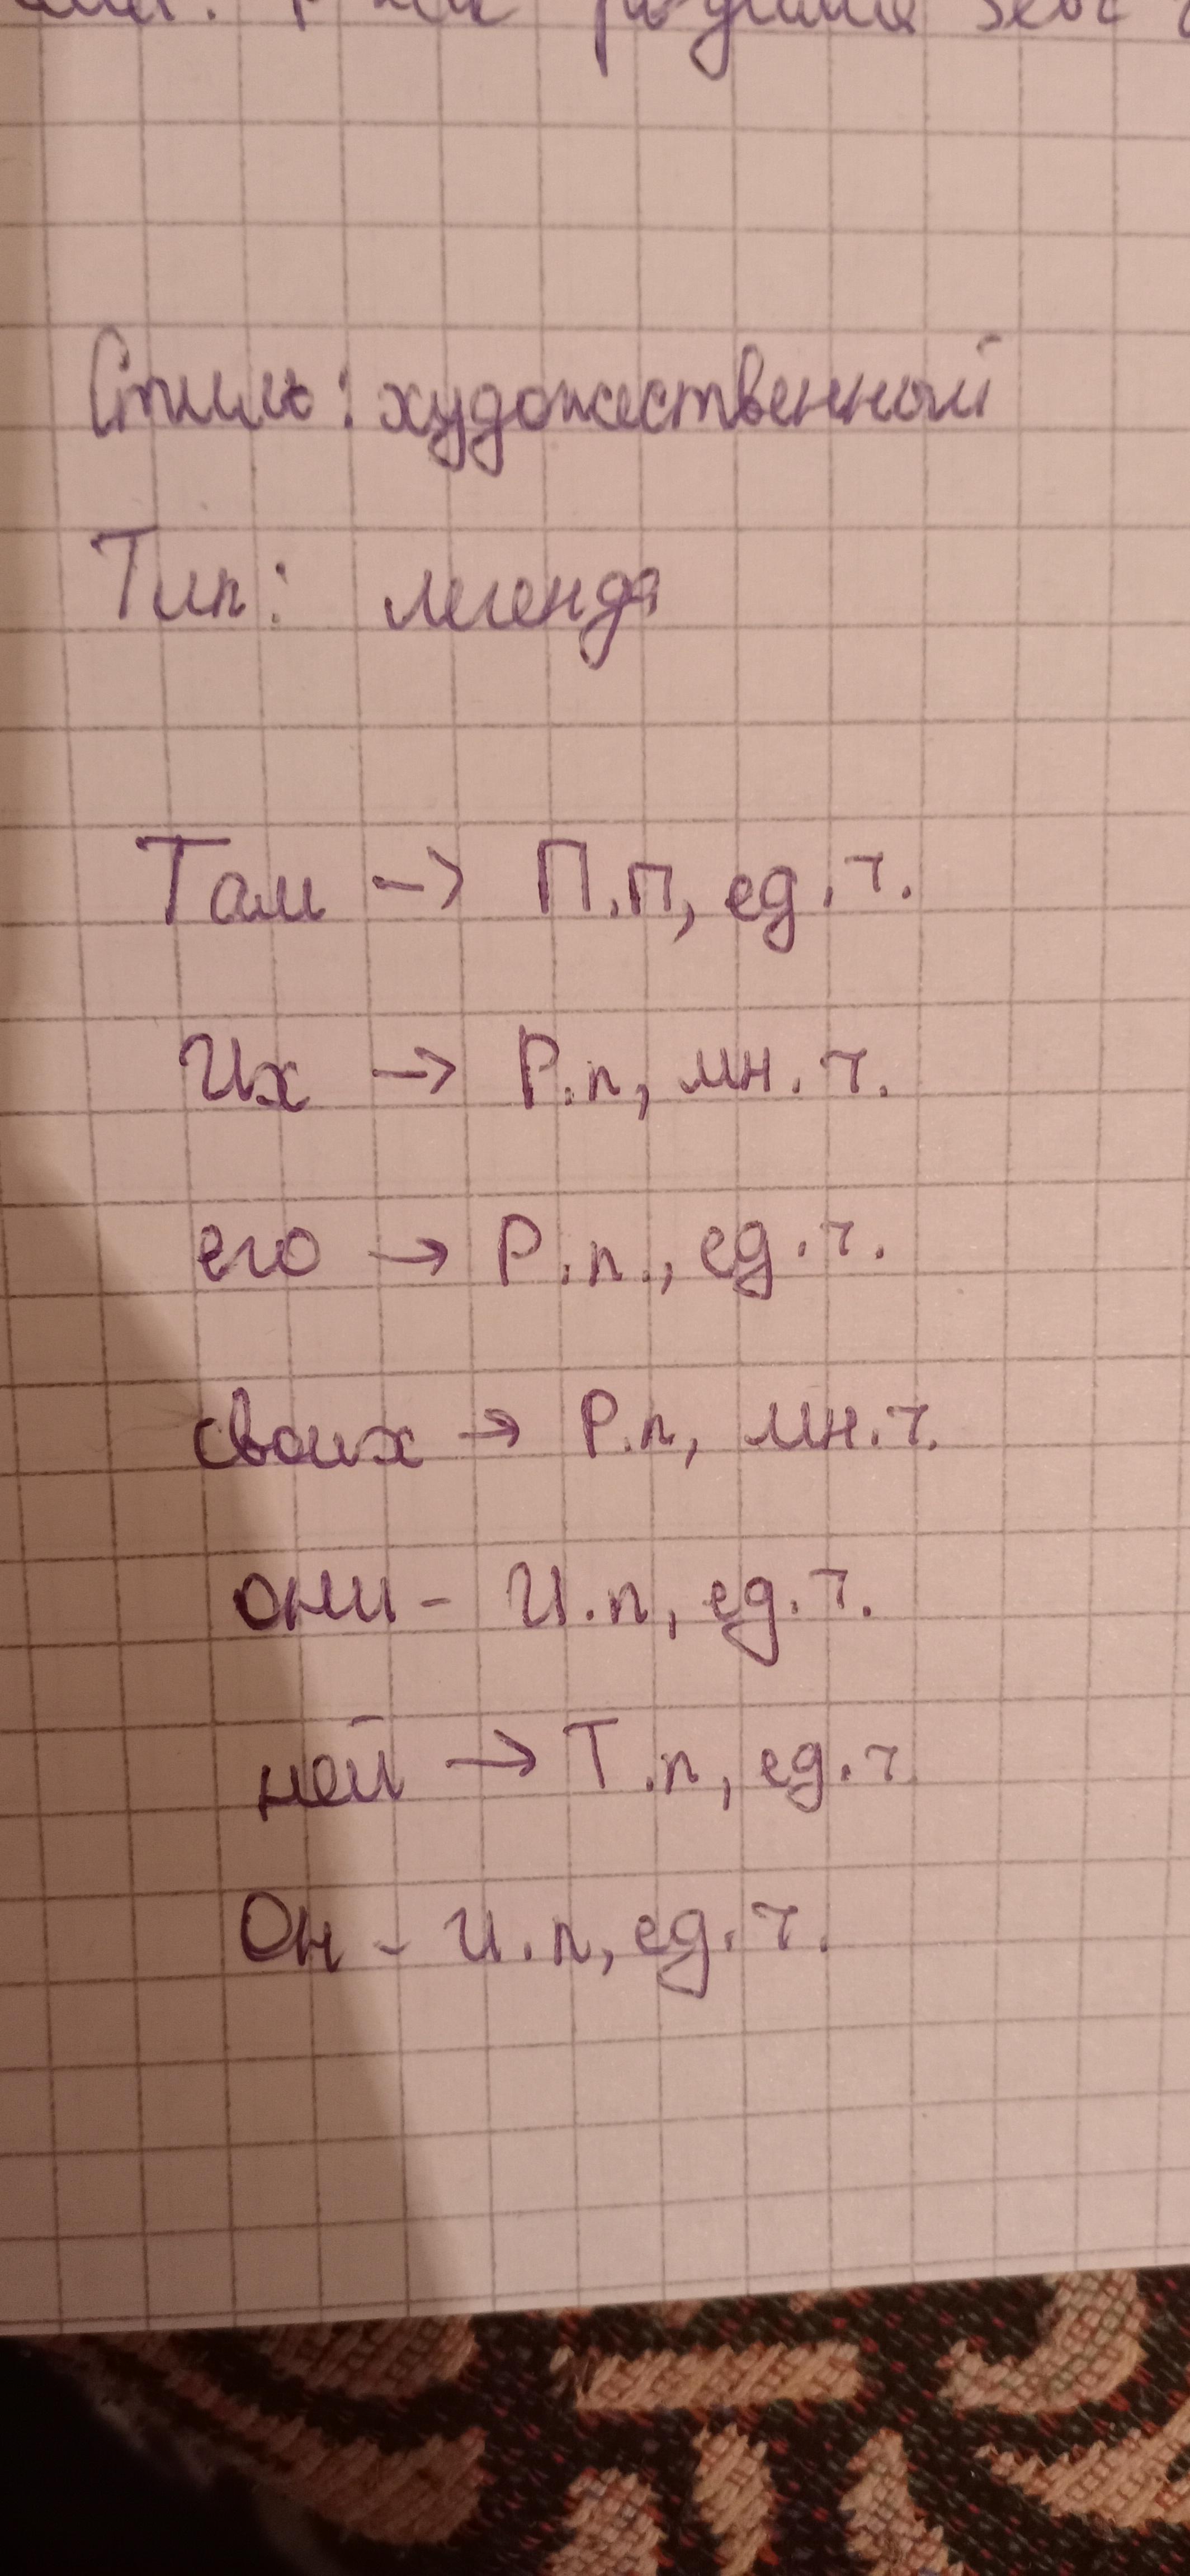 Стиль: художественный
Тип: легенда
Там -> П.п, ед.ч.
Их -> Р.п, мн.ч.
его -> Р.п., ед.ч.
своих -> Р.п, мн.ч.
они - И.п, ед.ч.
ней -> Т.п, ед.ч.
Он - И.п, ед.ч.